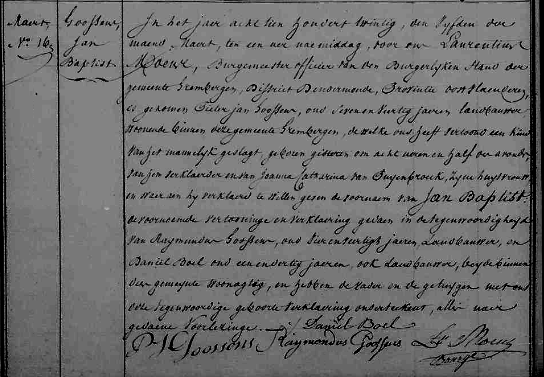 Maert,
N.º 16,
Goossens,
Jan
Baptist
In het jaer achttien hondert twintig, den vyfden der
maend Maert, ten een ure naemiddag, voor ons Laurentius
Moens, Burgemeester officier van den Burgerlyken Stand der
gemeente Grembergen, District Dendermonde, Provintie oost vlaenderen,
is gekomen Pieter jan Goossens, oud seven en dertig jaeren landbouwer
woonende binnen deze gemeente Grembergen, dewelke ons heeft vertoond een kind
van het mannelyk geslagt, geboren gisteren om acht uren en half des avonds
van hem verklaerder en van Joanna Catharina van Puyenbroeck, zyne huysvrouw
en waer aen hy verklaerd te willen geven de voornaem van Jan Baptist
de voornoemde vertooninge en verklaering gedaen in de tegenwoordigheyd
van Raymundus Goossens, oud vier en veertig jaeren, Landbouwer, en
Daniel Boel oud een en dertig jaeren, ook Landbouwer, beyde binnen
dese gemeente woonagtig, en hebben de vader en de getuygen met ons
deze tegenwoordige geboorte verklaering onderteekent, alles naer
gedaene Voorlezinge. Daniel Boel
P J Goossens Raymondus Goossens L. Moens
Borge